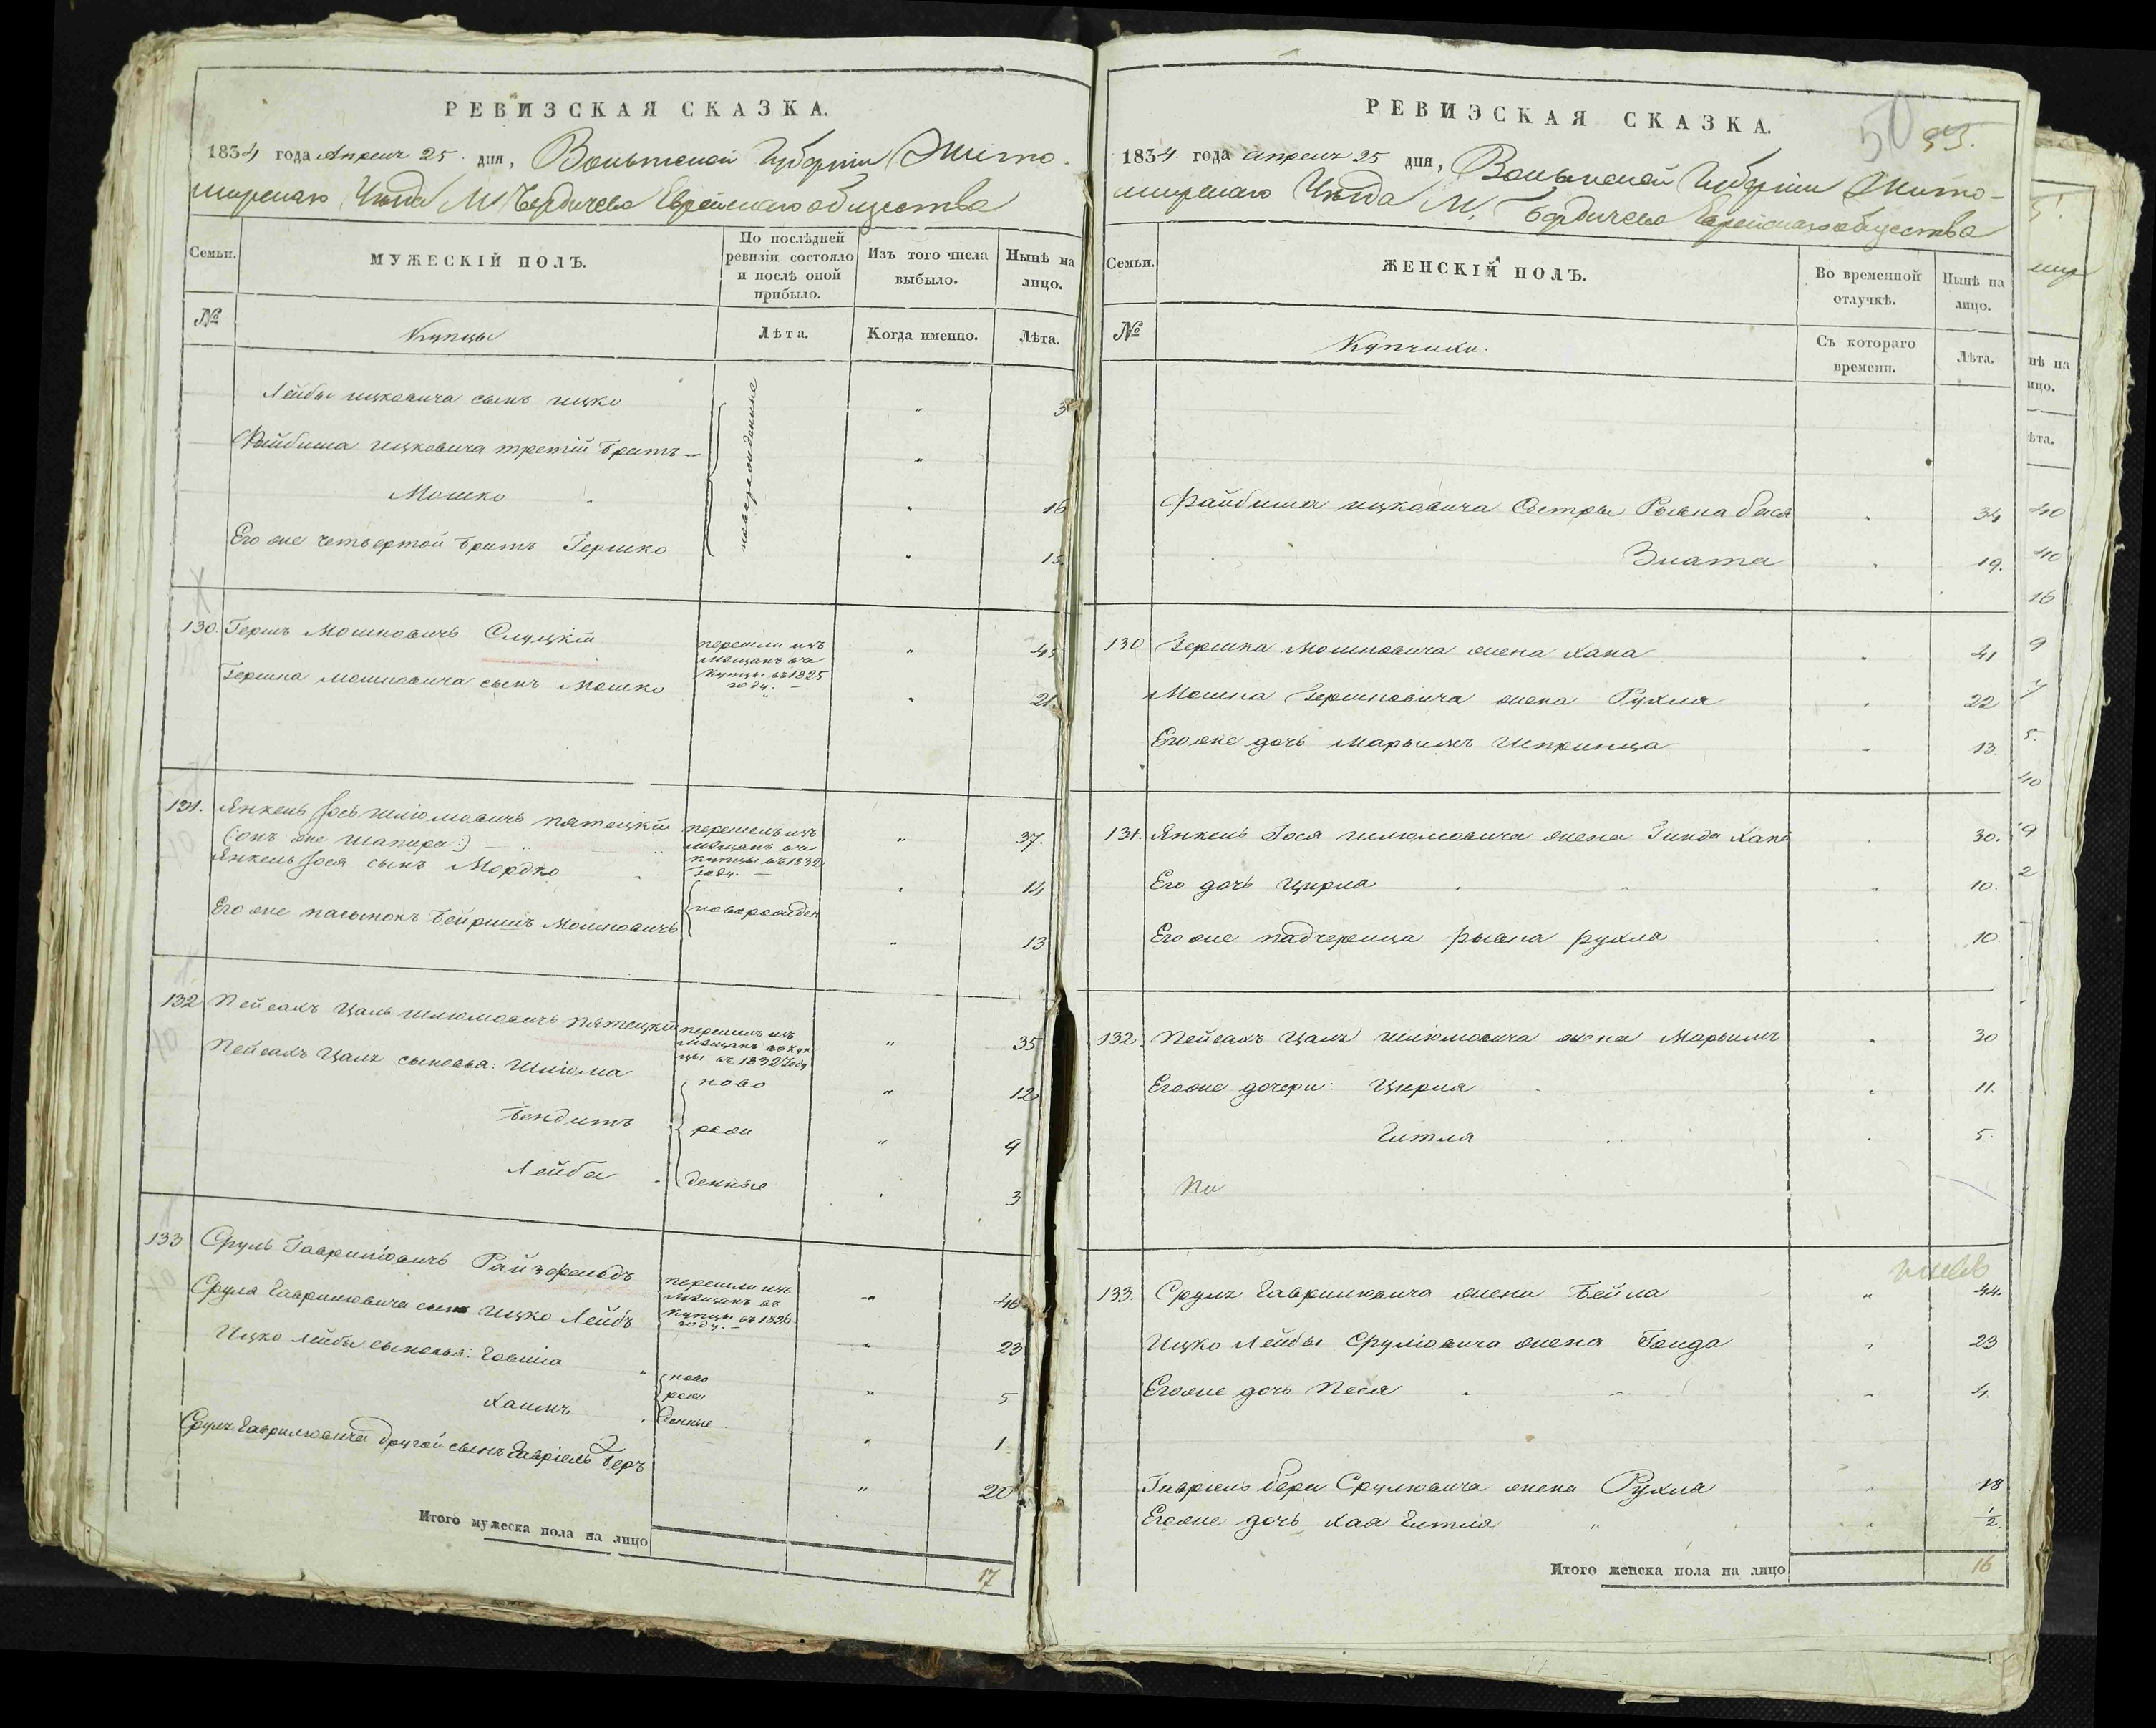 РЕВИЗСКАЯ СКАЗКА.
1834 года Апреля 25 дня, Волынской Губерніи Жито-
мирскаго Уѣзда М. Бердичева Еврейскаго общества
Семьи.
МУЖЕСКІЙ ПОЛЪ.
По послѣдней ревизіи состояло и послѣ оной прибыло.
Изъ того числа выбыло.
Нынѣ на лицо.
№
Купцы
Лѣта.
Когда именно.
Лѣта.
Лейбы ицковича сынъ ицко " 3
Файбиша ицковича третій братъ— "
Мошко " 16
Его же четвертой братъ Гершко " 15.
новорожденные
130. Гершъ Мошковичъ Слуцкій перешли изъ мѣщанъ въ купцы въ 1825 году. — " 45
Гершка мошковича сынъ Мошко " " 21.
131. Янкель Іось шліомовичъ пятецкій перешелъ изъ мѣщанъ въ купцы въ 1832 году. — " 37.
(: онъ же Шапира :)
Янкель Іося сынъ Мордко " 14
Его же пасынокъ Бейришъ Мошковичъ новорожден " 13
132 Пейсахъ Цаль шліомовичъ пятецкій перешелъ изъ мѣщанъ въ куп цы въ 1832 году " 35
Пейсахъ Цаля сыновья: Шліома ново " 12
Бендитъ рож " 9
Лейба денные " 3
133 Сруль Гаврилювичъ Райзфельдъ перешли изъ мѣщанъ въ купцы въ 1826 году. — " 46
Сруля Гаврилювича сынъ Ицко Лейбъ " 23
Ицко Лейбы сыновья: Говшіа ново " 5
Хаимъ рож денные " 1
Сруля Гаврилювича другой сынъ Гавріель Беръ " 20
Итого мужеска пола на лицо 17
50 53.
РЕВИЗСКАЯ СКАЗКА.
1834. года апреля 25 дня, Волынской Губерніи Жито-
мирскаго Уѣзда М. Бердичева Еврейскаго общества
Семьи.
ЖЕНСКІЙ ПОЛЪ.
Во временной отлучкѣ.
Нынѣ на лицо.
№
Купчихи.
Съ котораго времени.
Лѣта.
Файбиша ицковича Сестры Рывка бася " 34
Злата " 19.
130 Гершка Мошковича жена Хана " 41
Мошка Гершковича жена Рухля " 22
Его же дочь Марьимъ Шпринца " 13.
131. Янкель Іося шлюмовича жена Гинда Хана " 30.
Его дочь Цирля " 10.
Его же падчерица рывка рухля " 10.
132. Пейсахъ Цаля шліомовича жена Марьимъ " 30
Его же дочери: Цирля " 11.
Гитля " 5.
133. Сруля Гаврилювича жена Бейла " 44.
Ицко Лейбы Сруліовича жена Голда " 23
Его же дочь Песя " 4
Гавріель бера Срулювича жена Рухля " 18
Его же дочь хая Гитля " 1/2.
Итого женска пола на лицо 16